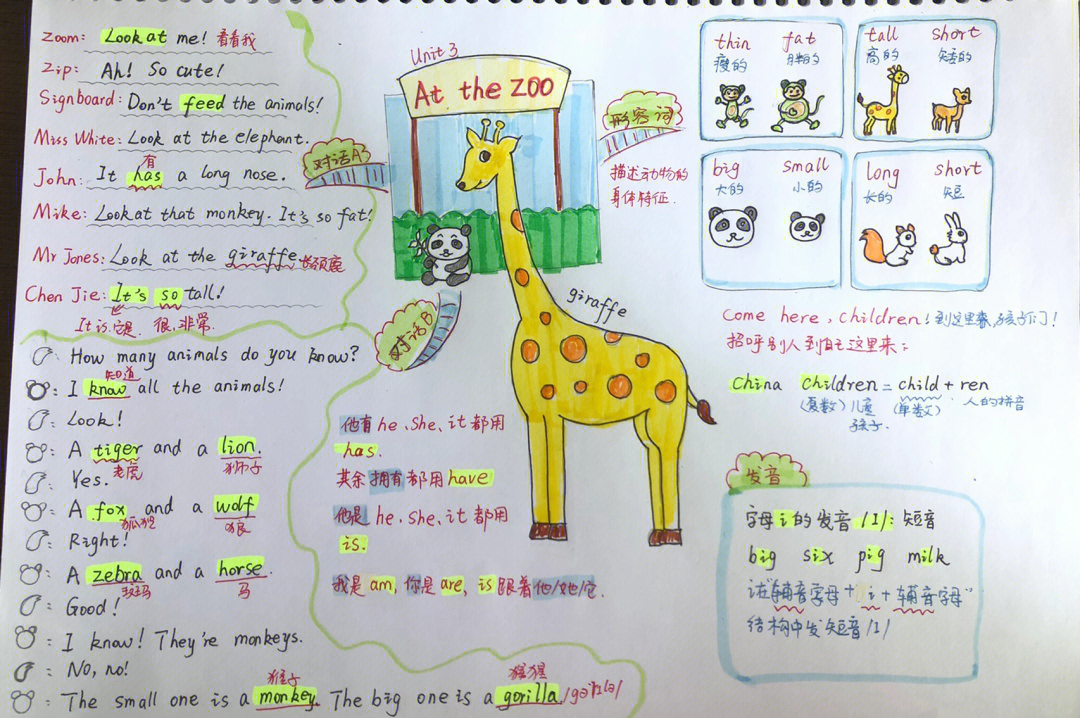 Zoom: Look at me! 看看我
Zip: Ah! So cute!
Signboard: Don't feed the animals!
Miss White: Look at the elephant.
有
John: It has a long nose.
Mike: Look at that monkey. It's so fat!
Mr Jones: Look at the giraffe. 长颈鹿
Chen Jie: It's so tall!
It is 它是 很,非常
对话A
Unit 3
At the ZOO
形容词
描述动物的
身体特征.
thin fat
瘦的 胖的
tall short
高的 矮的
big small
大的 小的
long short
长的 短
对话B
: How many animals do you know?
知道
: I know all the animals!
: Look!
: A tiger and a lion.
老虎 狮子
: Yes.
: A fox and a wolf
狐狸 狼
: Right!
: A zebra and a horse.
斑马 马
: Good!
: I know! They're monkeys.
: No, no!
猴子 猩猩
: The small one is a monkey. The big one is a gorilla
giraffe
他有 he、she、it 都用
has.
其余拥有都用 have
他是 he、she、it 都用
is.
我是 am, 你是 are, is 跟着他/她/它.
Come here, children! 到这里来,孩子们!
招呼别人到自己这里来:
China children = child + ren
(复数)儿童 (单数) 人的拼音
孩子.
发音
字母 i 的发音 /I/: 短音
big six pig milk
让"辅音字母 + i + 辅音字母"
结构中发短音 /I/